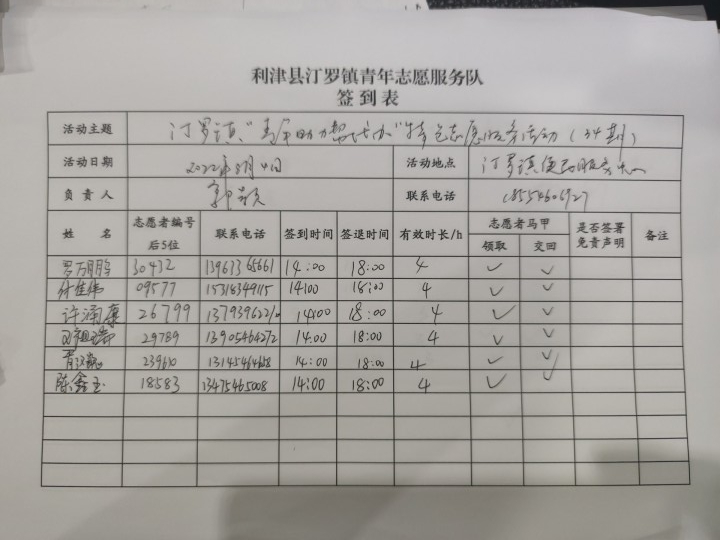 利津县汀罗镇青年志愿服务队
签到表
活动主题 汀罗镇"青年助力帮代办"特色志愿服务活动(34期)
活动日期 2022年8月4日 活动地点 汀罗镇便民服务中心
负责人 联系电话 18554606927
姓 名 志愿者编号后5位 联系电话 签到时间 签退时间 有效时长/h 志愿者马甲 领取 交回 是否签署免责声明 备注
30432 13963365661 14:00 18:00 4 ✓ ✓
09577 15318349115 14:00 18:00 4 ✓ ✓
许涌康 26799 14:00 18:00 4 ✓ ✓
29789 13905464272 14:00 18:00 4 ✓ ✓
14:00 18:00 4 ✓ ✓
陈鑫玉 18583 13475465008 14:00 18:00 4 ✓ ✓